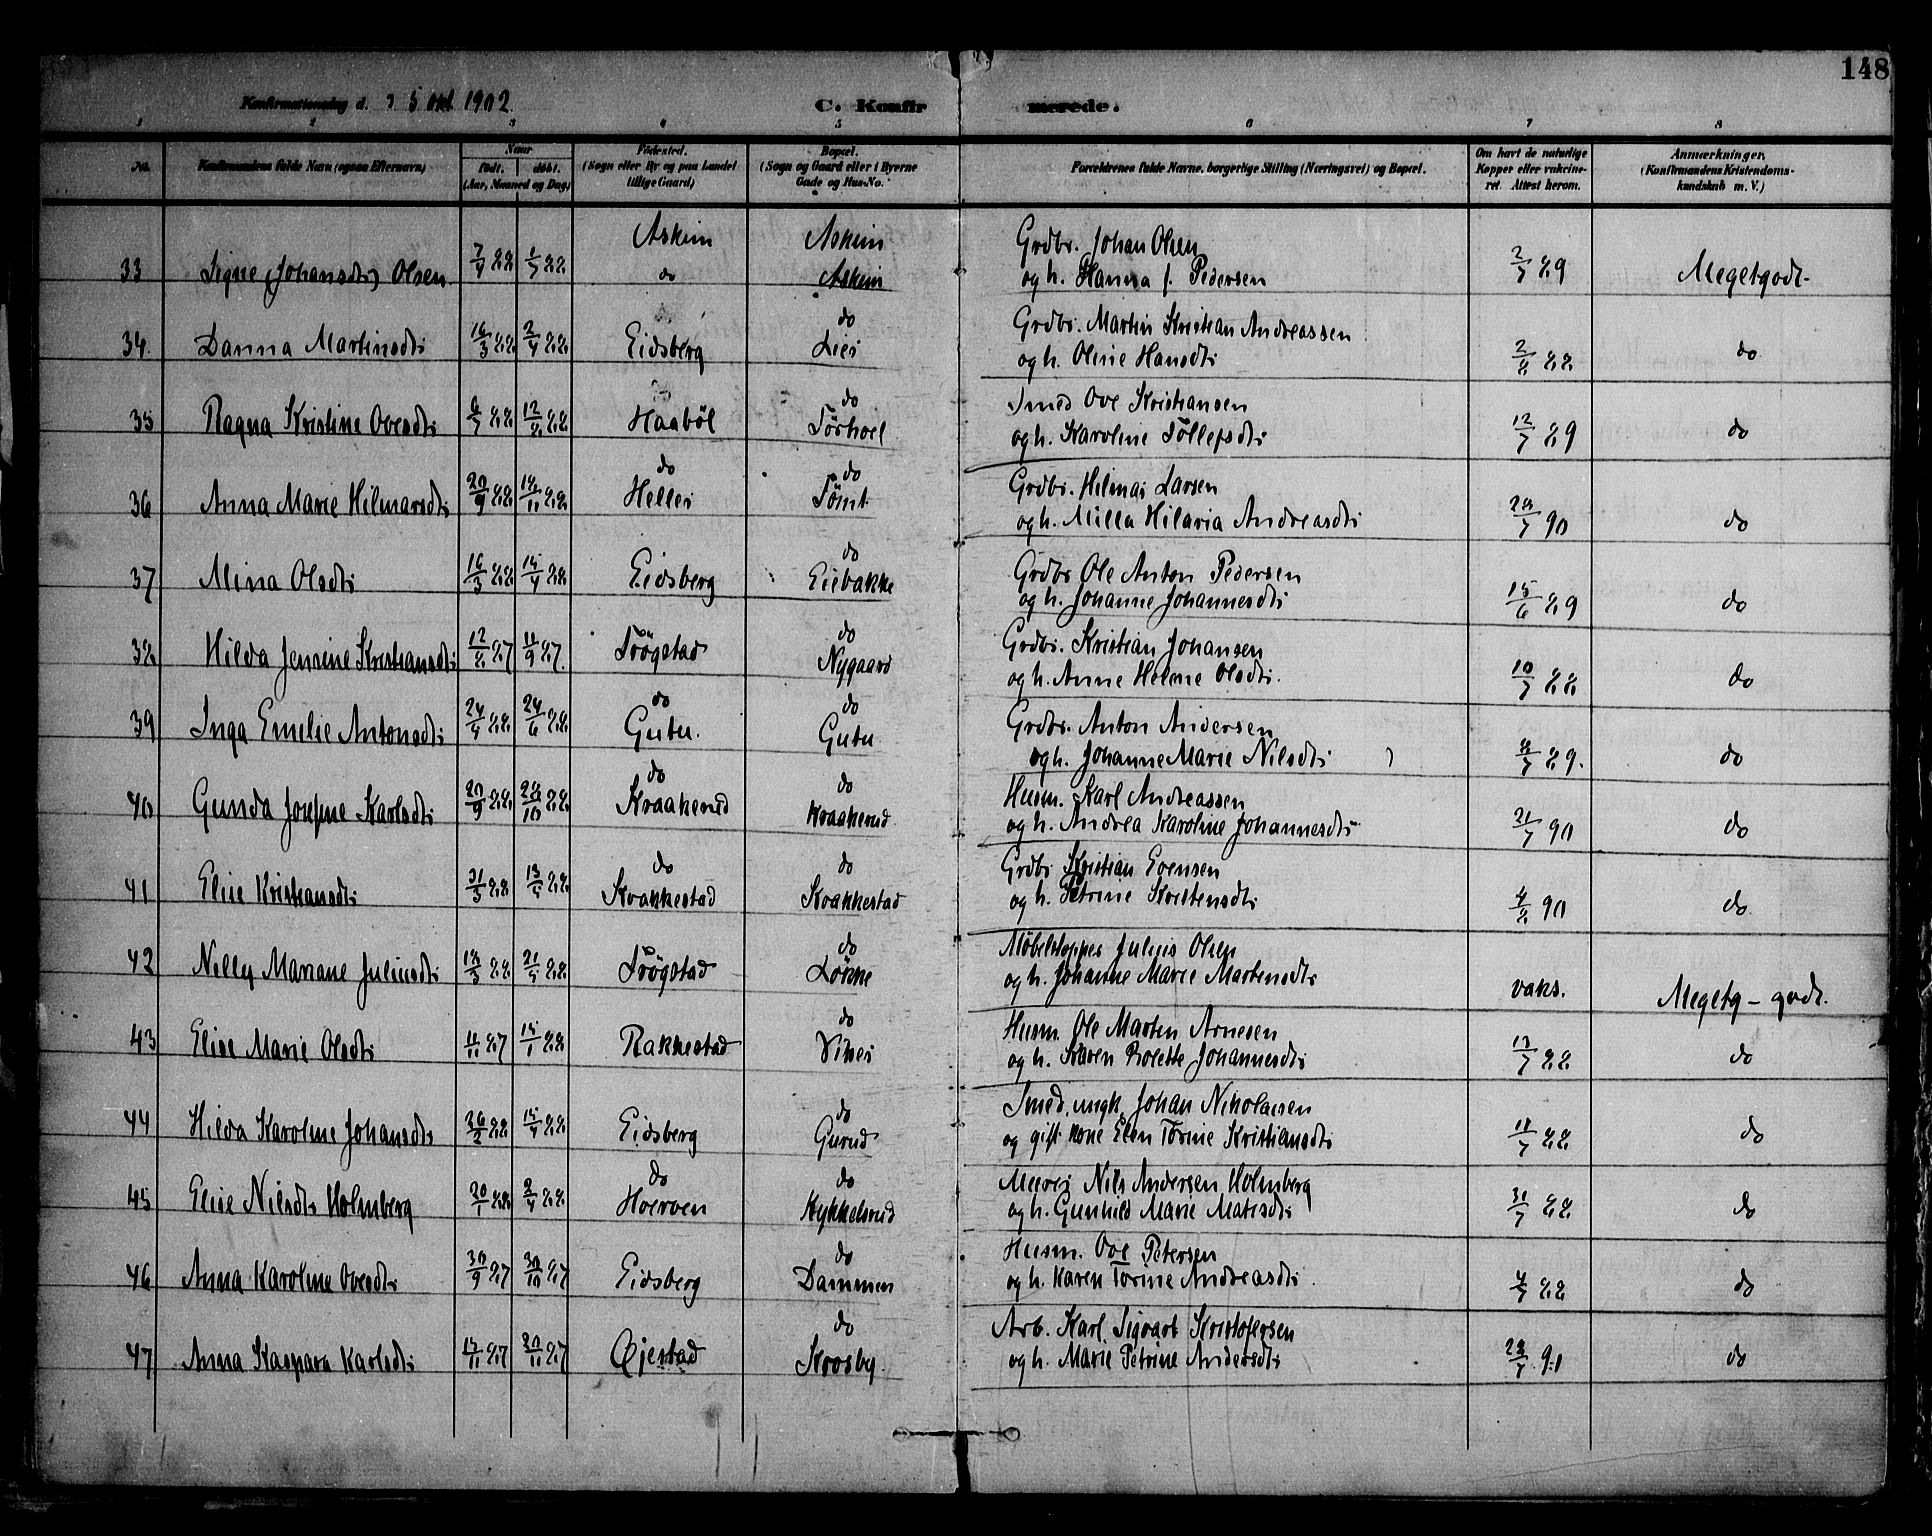 148
Konfirmationsdag d. 5 okt 1902.
C. Konfirmerede.
1 2 3 4 5 6 7 8
No. Konfirmandens fulde Navn (ogsaa Efternavn) Naar født. døbt. (Aar, Maaned og Dag) Fødested. (Sogn eller By og paa Landet tillige Gaard) Bopæl. (Sogn og Gaard eller i Byerne Gade og Hus-No. Forældrenes fulde Navne, borgerlige Stilling (Næringsvei) og Bopæl. Om havt de naturlige Kopper eller vakcineret. Attest herom. Anmærkninger. (Konfirmandens Kristendomskundskab m. V.)
Askim Askim Grdbr. Johan Olsen
33 Signe (Johansdtr) Olsen. 88 88 do Askim og h. Hanna f. Pedersen 2/7 89 Megetgodt
do Grdbr. Martin Kristian Andreassen
34. Danna Martinsdtr 16/3 88 2/4 88 Eidsberg Lier og h. Oline Hansdtr 2/8 88 do
do Smed Ove Kristiansen
35 Ragna Kristine Ovesdtr 6/7 88 12/8 88 Haabøl og h. Karoline Tollefsdtr 12/7 89 do
do do Grdbr. Hilmar Larsen
36 Anna Marie Hilmarsdtr 20/9 88 18/11 88 Heller Tømt og h. Milla Hilaria Andreasdtr 28/7 90 do
do Grdbr Ole Anton Pedersen
37 Mina Olsdtr 16/3 88 15/4 88 Eidsberg Eiebakke og h. Johanne Johannesdtr 15/6 89 do
do Grdbr. Kristian Johansen
38 Hilda Jensine Kristiansdtr 12/8 87 11/9 87. Trøgstad Nygaard og h. Anne Helene Olsdtr. 10/7 88 do
do do Grdbr. Anton Andersen
39 Inga Emelie Antonsdtr 88 24/6 88 Gutu. Gutu og h. Johanne Marie Nilsdtr 8/7 89. do
do do Husm. Karl Andreassen
40 Gunda Josefine Karlsdtr 20/9 88 28/10 88 Kraakerud Kraakerud og h. Andrea Karoline Johannesdtr 21/7 90 do
do do Grdbr Kristian Evensen
41 Elise Kristiansdtr 31/3 88 13/5 88 Krakkestad Krakkestad og h. Petrine Kristensdtr 4/8 90 do
do Møbelstopper Julius Olsen
42 Nelly Mariane Juliusdtr 18/3 88 21/5 88 Trøgstad og h. Johanne Marie Martensdtr vaks. Megetg - godt.
do Husm. Ole Martin Arnesen
43 Elise Marie Olsdtr 11/11 87 15/1 88 Rakkestad og h. Karen Bolette Johannesdtr 17/7 88 do
do Smed, ungk. Johan Nikolaisen
44 Hilda Karoline Johansdtr 26/2 88 15/4 88 Eidsberg Gurud og gift kone Elen Torine Kristiansdtr 11/7 88 do
do do Murer Nils Andersen Holmberg
45 Elise Nilsdtr Holmberg 20/1 88 2/4 88 Hoerven Kykkelsrud og h. Gunhild Marie Matisdtr 31/7 88 do
do Husm. Ove Petersen
46 Anna Karoline Ovesdtr 30/9 87 30/10 87 Eidsberg Dammen og h. Karen Torine Andreasdtr. 4/7 88 do
do Arb. Karl Sigvart Kristofersen
47 Anna Kaspara Karlsdtr 87 20/11 87 Øiestad Krosby og h. Marie Petrine Andersdtr 28/7 91 do